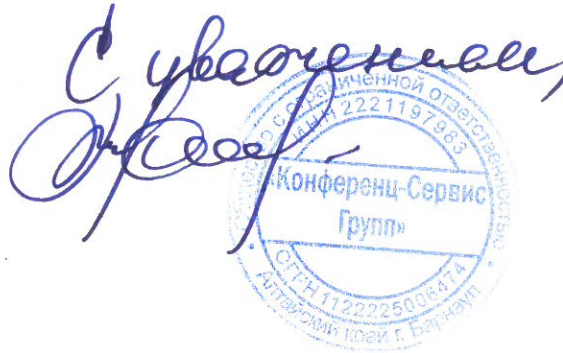 С уважением,
Общество с ограниченной ответственностью
ИНН 2221197983
«Конференц-Сервис
Групп»
ОГРН 1122225006474
* Алтайский край г. Барнаул *